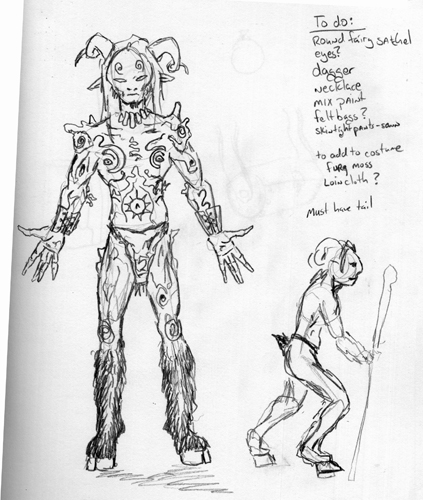 To do:
Round fairy satchel
eyes?
dagger
necklace
mix paint
felt bags?
skintight pants - sewn
to add to costume
Furry moss
Loincloth?
Must have tail